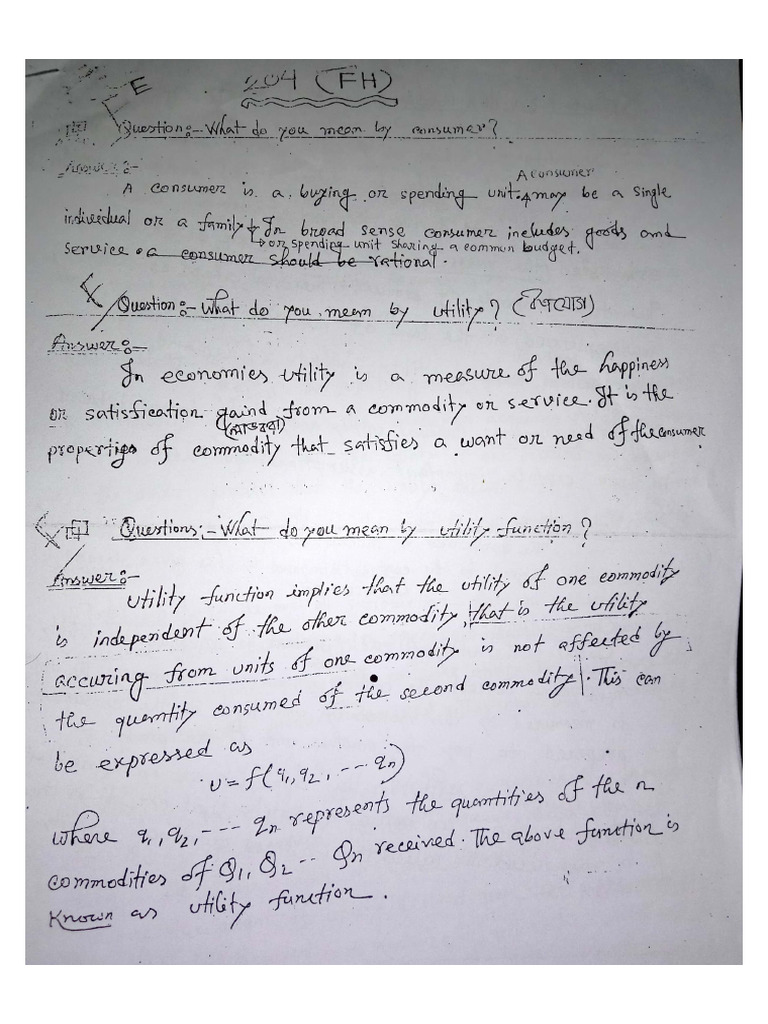 E
204 (FH)
Question:- What do you mean by consumer?
Answer:-
A consumer
A consumer is a buying or spending unit. may be a single
individual or a family In broad sense consumer includes goods and
or spending unit sharing a common budget.
service. a consumer should be rational.
Question:- What do you meam by utility? (উপযোগ)
Answer:-
In economics utility is a measure of the happiness
or satisfication gaind from a commodity or service. It is the
properties of commodity that satisfies a want or need of the consumer
Questions:- What do you mean by utility function?
Answer:-
Utility function implies that the utility of one commodity
is independent of the other commodity, that is the utility
accuring from units of one commodity is not affected by
the quantity consumed of the second commodity. This can
be expressed as
U = f(q1, q2, --- qn)
where q1, q2, --- qn represents the quantities of the n
commodities of Q1, Q2 -- Qn received. The above function is
known as utility function.